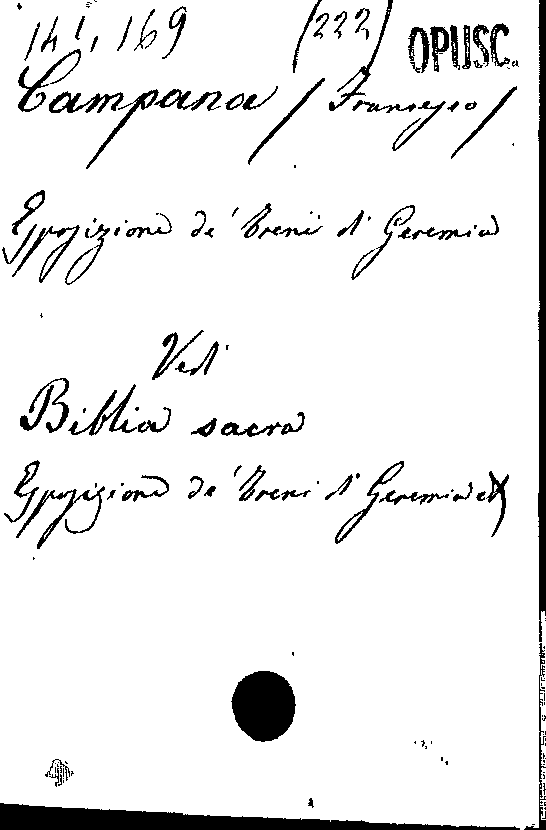 141, 169 (222) OPUSC.
Campana / Francesco /
Esposizione de' Treni di Geremia
Vedi
Biblia sacra
Esposizione de' Treni di Geremia etc